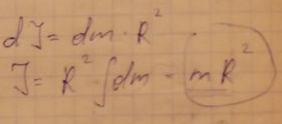 dJ = dm · R²
J = R² ∫dm = mR²